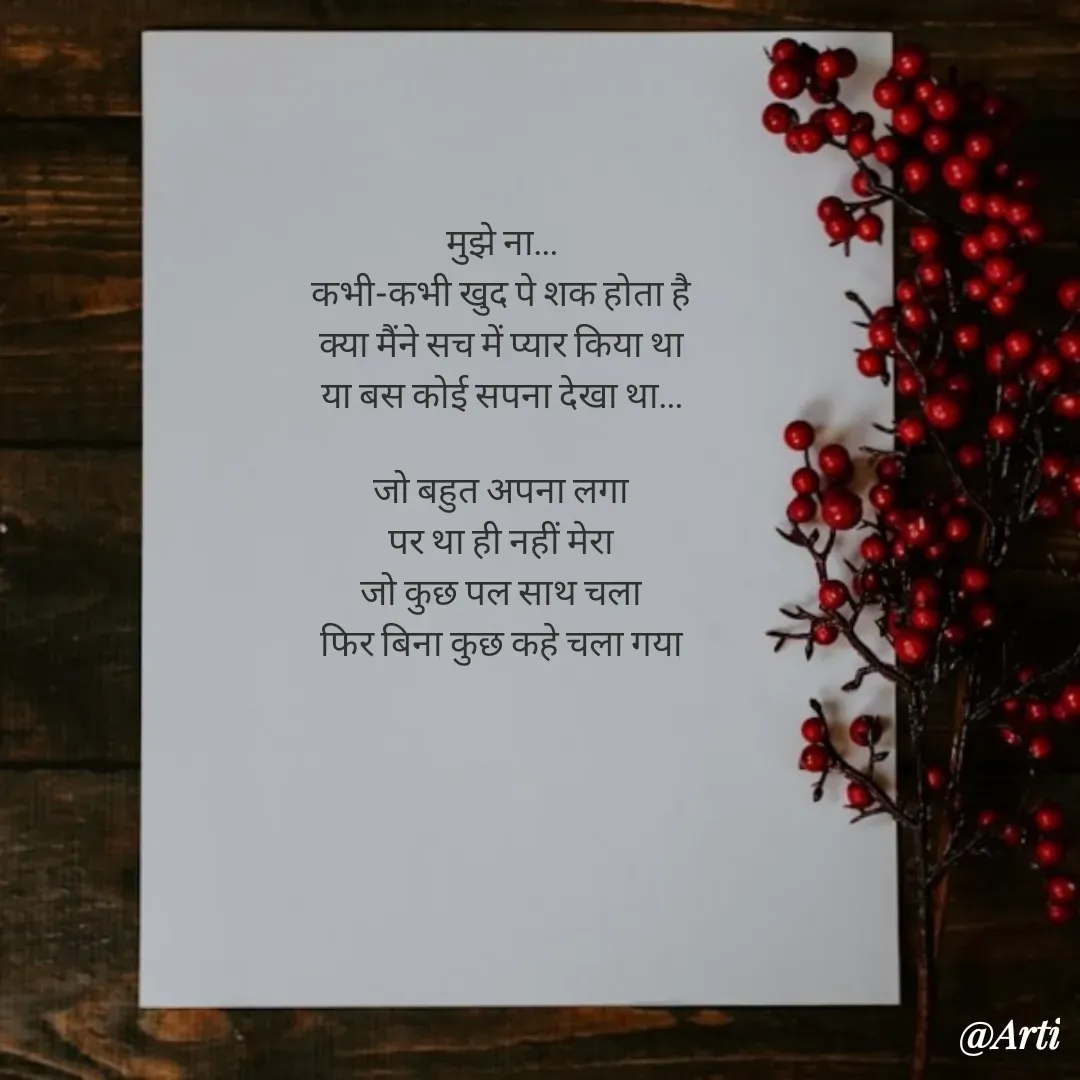 मुझे ना...
कभी-कभी खुद पे शक होता है
क्या मैंने सच में प्यार किया था
या बस कोई सपना देखा था...
जो बहुत अपना लगा
पर था ही नहीं मेरा
जो कुछ पल साथ चला
फिर बिना कुछ कहे चला गया
@Arti